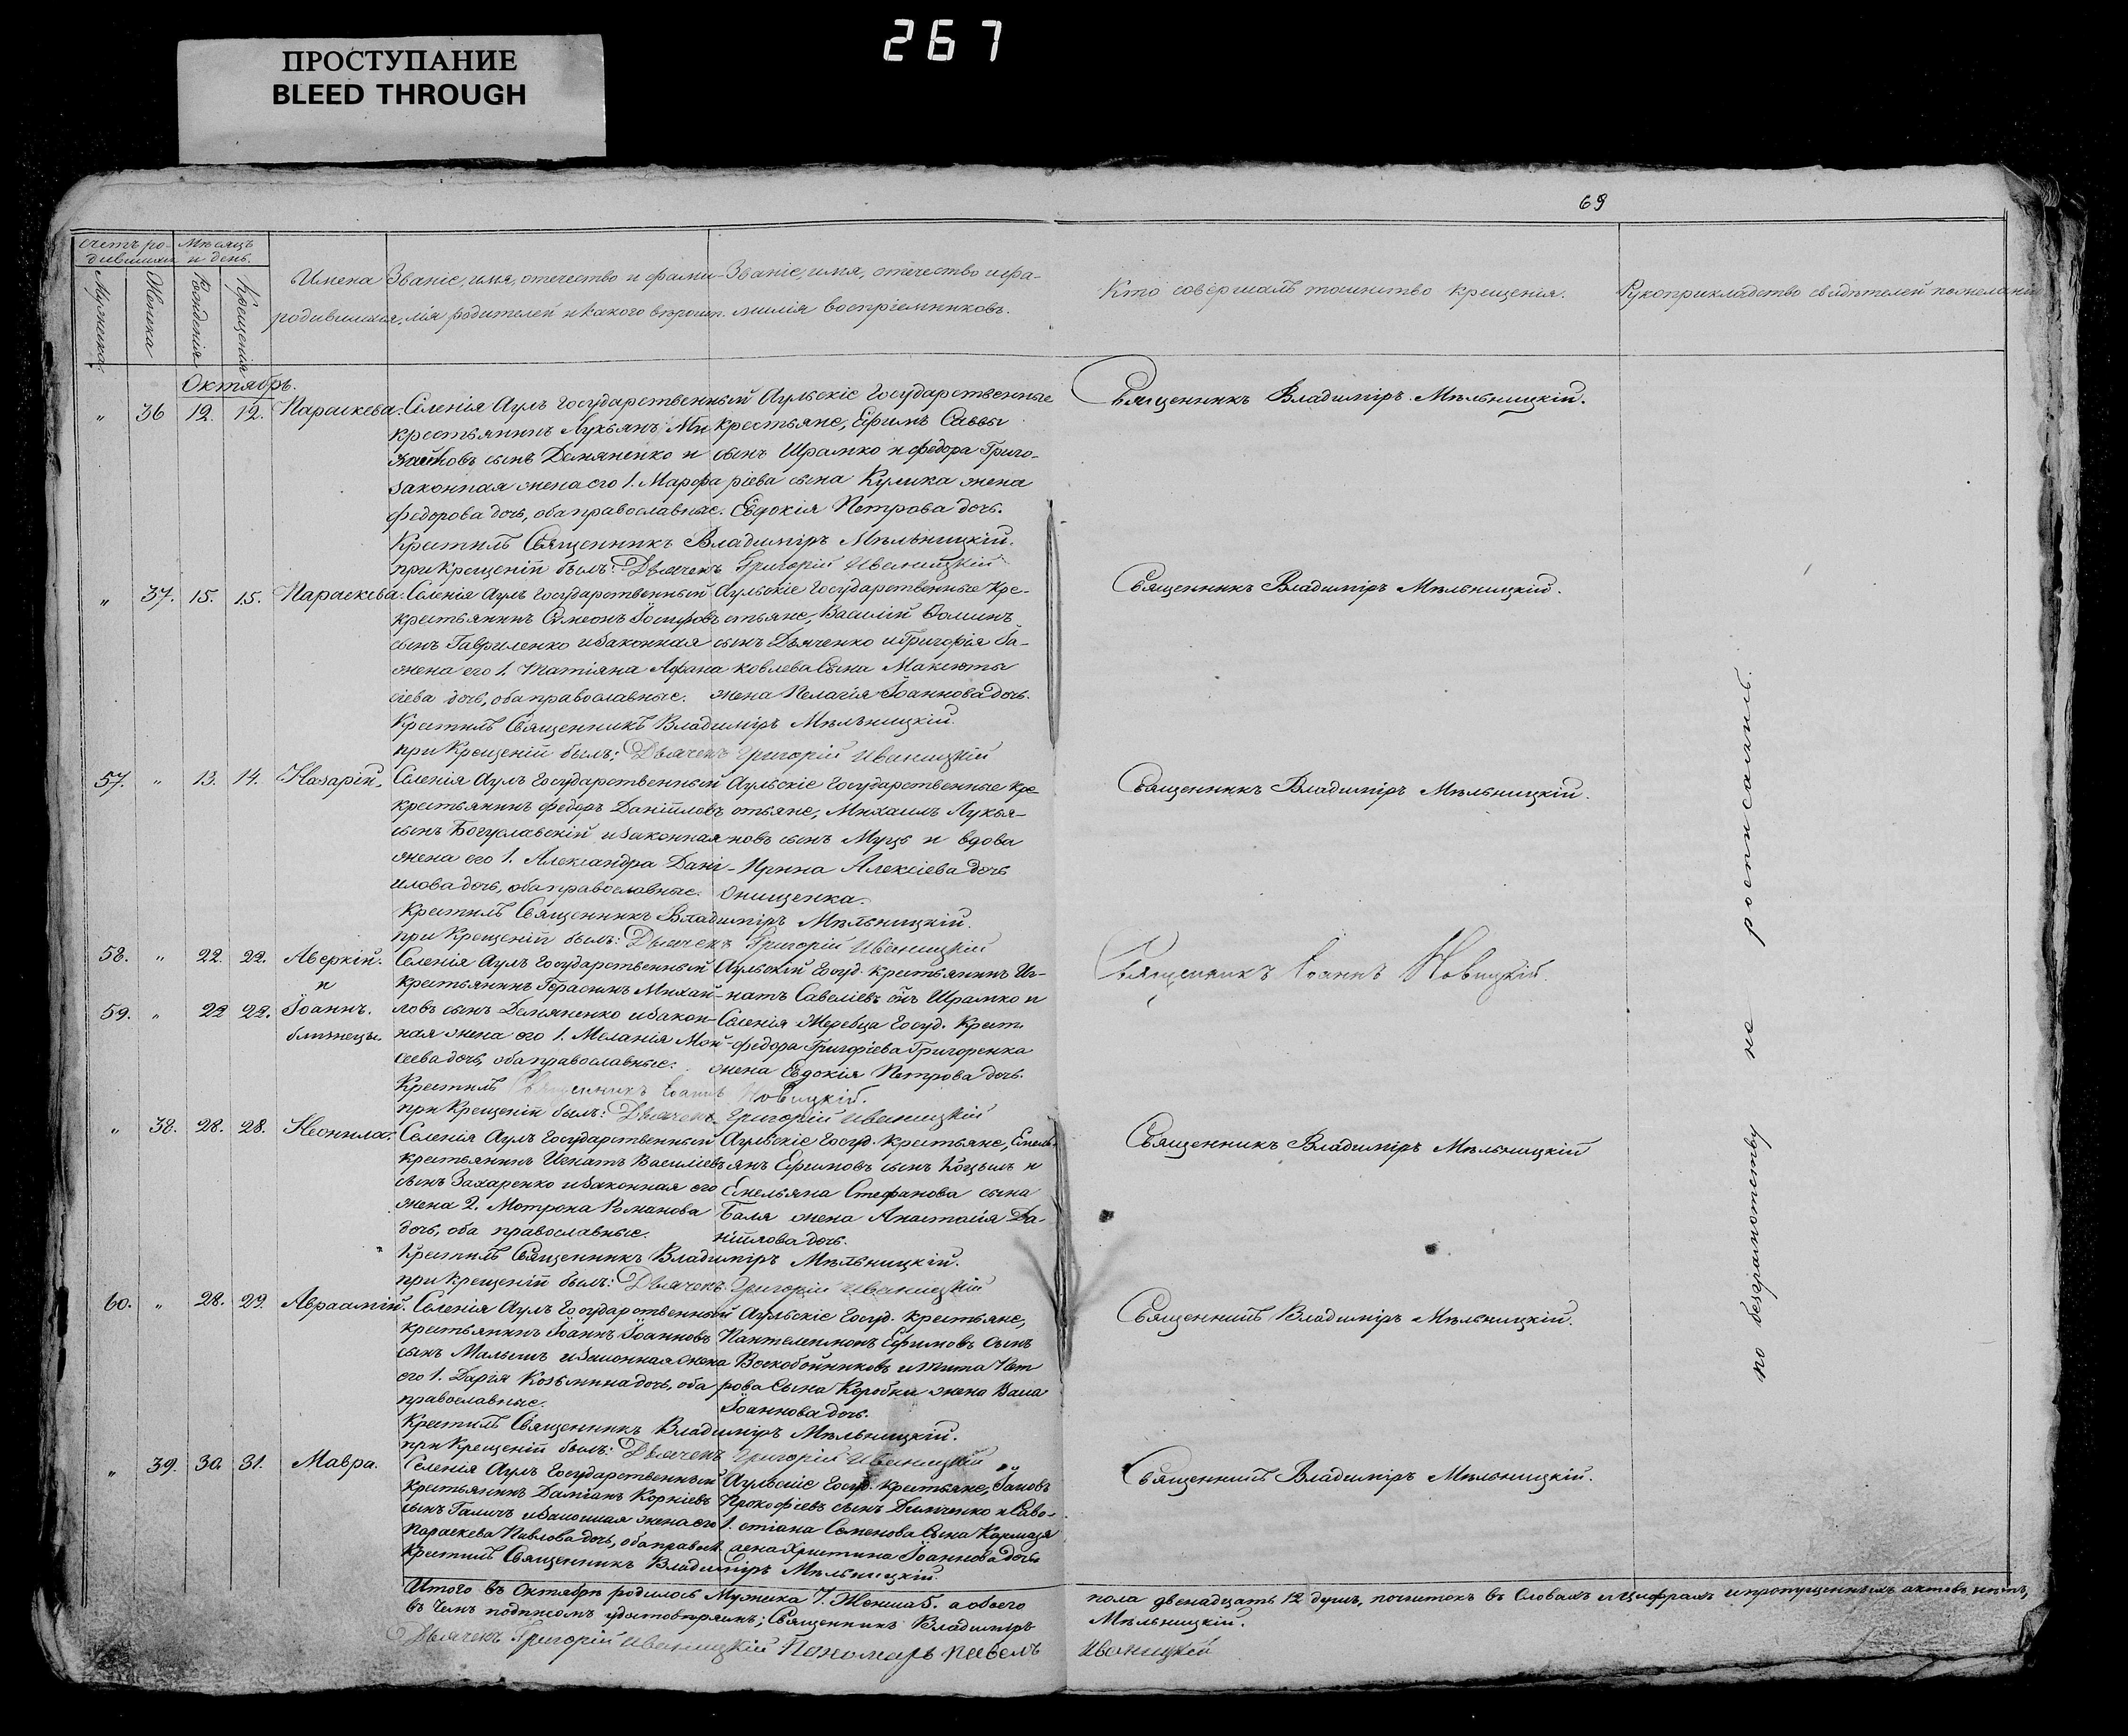 267
ПРОСТУПАНИЕ
BLEED THROUGH
69
Счетъ ро-
дившихся
Мѣсяцъ
и день.
Мужеска.
Женска
Рожденія
Крещенія
Имена
родившихся.
Званіе, имя, отечество и фами-
лія родителей и какого вѣроисп.
Званіе, имя, отечество и фа-
милія воспріемниковъ.
Кто совершалъ таинство крещенія.
Рукоприкладство свидѣтелей по желанію
Октябрь.
„ 36 12. 12. Параскева.
Селенія Аулъ Государственный
крестьянинъ Лукьянъ Ми
хайловъ сынъ Демяненко и
законная жена его 1. Марфа
Федорова дочь, оба православные.
Аульскіе Государственные
крестьяне, Ефимъ Саввы
сынъ Шрамко и Федора Григо-
ріева сына Кулика жена
Евдокія Петрова дочь.
Крестилъ Священникъ Владиміръ Мѣльницкій.
при Крещеніи былъ: Дьячекъ Григорій Иваницкій
Священникъ Владиміръ Мѣльницкій.
„ 37. 15. 15. Параскева.
Селенія Аулъ Государственный
крестьянинъ Симеонъ Іосифовъ
сынъ Гавриленко и законная
жена его 1. Татіяна Афана
сіева дочь, оба православные.
Аульскіе Государственные Кре-
стьяне, Василій Фоминъ
сынъ Дьяченко и Григорія Іа-
ковлева Сына Максюты
жена Пелагія Іоаннова дочь.
Крестилъ Священникъ Владиміръ Мѣльницкій.
при Крещеніи былъ: Дьячекъ Григорій Иваницкій
Священникъ Владиміръ Мѣльницкій.
57. „ 13. 14. Назарій.
Селенія Аулъ Государственный
крестьянинъ Федоръ Даніиловъ
сынъ Богуславскій и законная
жена его 1. Александра Дані-
илова дочь, оба православные.
Аульскіе Государственные кре
стьяне, Михаилъ Лукья-
новъ сынъ Муць и вдова
Ирина Алексіева дочь
Онищенка.
Крестилъ Священникъ Владиміръ Мѣльницкій.
при Крещеніи былъ: Дьячекъ Григорій Иваницкій
Священникъ Владиміръ Мѣльницкій.
58. „ 22. 22. Аверкій.
и
59. „ 22 22. Іоаннъ.
близнецы.
Селенія Аулъ Государственный
крестьянинъ Герасимъ Михай-
ловъ сынъ Демяненко и закон-
ная жена его 1. Меланія Мои-
сеева дочь, оба православные.
Аульскій Госуд. крестьянинъ Иг-
натъ Савеліевъ снъ Шрамко и
Селенія Жеребца Госуд. Крест.
Федора Григоріева Григоренка
жена Евдокія Петрова дочь.
Крестилъ Священникъ Іоаннъ Новицкій.
при Крещеніи былъ: Дьячекъ Григорій Иваницкій
Священникъ Іоаннъ Новицкій.
„ 38. 28. 28. Неонила.
Селенія Аулъ Государственный
крестьянинъ Игнатъ Василіевъ
сынъ Захаренко и законная его
жена 2. Мотрона Романова
дочь, оба православные.
Аульскіе Госуд. крестьяне, Емель-
янъ Ефимовъ сынъ и
Емельяна Стефанова сына
Баля жена Анастасія Да-
ніилова дочь.
Крестилъ Священникъ Владиміръ Мѣльницкій.
при Крещеніи былъ: Дьячекъ Григорій Иваницкій
Священникъ Владиміръ Мѣльницкій
60. „ 28. 29. Авраамій.
Селенія Аулъ Государственный
крестьянинъ Іоаннъ Іоанновъ
сынъ Малышъ и законная жена
его 1. Дарія Козьмина дочь, оба
православные.
Аульскіе Госуд. крестьяне,
Пантелеимонъ Ефимовъ Сынъ
Воскобойниковъ и Тита Пет
рова Сына Коробки жена Васса
Іоаннова дочь.
Крестилъ Священникъ Владиміръ Мѣльницкій.
при Крещеніи былъ: Дьячекъ Григорій Иваницкій
Священникъ Владиміръ Мѣльницкій.
„ 39. 30. 31. Мавра.
Селенія Аулъ Государственный
крестьянинъ Даміанъ Корніевъ
сынъ Галичъ и законная жена его 1.
Параскева Павлова дочь, оба правосл.
Аульскіе Госуд. крестьяне, Іаковъ
Прокофіевъ сынъ Демченко и Саво-
стіана Семенова Сына Кармазя
жена Христина Іоаннова дочь
Крестилъ Священникъ Владиміръ Мѣльницкій.
Священникъ Владиміръ Мѣльницкій.
по безграмотству не росписались.
Итого въ Октябрѣ родилось Мужеска 7. Женска 5. а обоего пола двенадцать 12 душъ, почистокъ въ Словахъ и Цифрахъ и пропущенныхъ актовъ нѣтъ,
въ Чемъ подписомъ удостовѣряемъ; Священникъ Владиміръ Мѣльницкій.
Дьячекъ Григорій Иваницкій Пономарь Павелъ Иваницкій